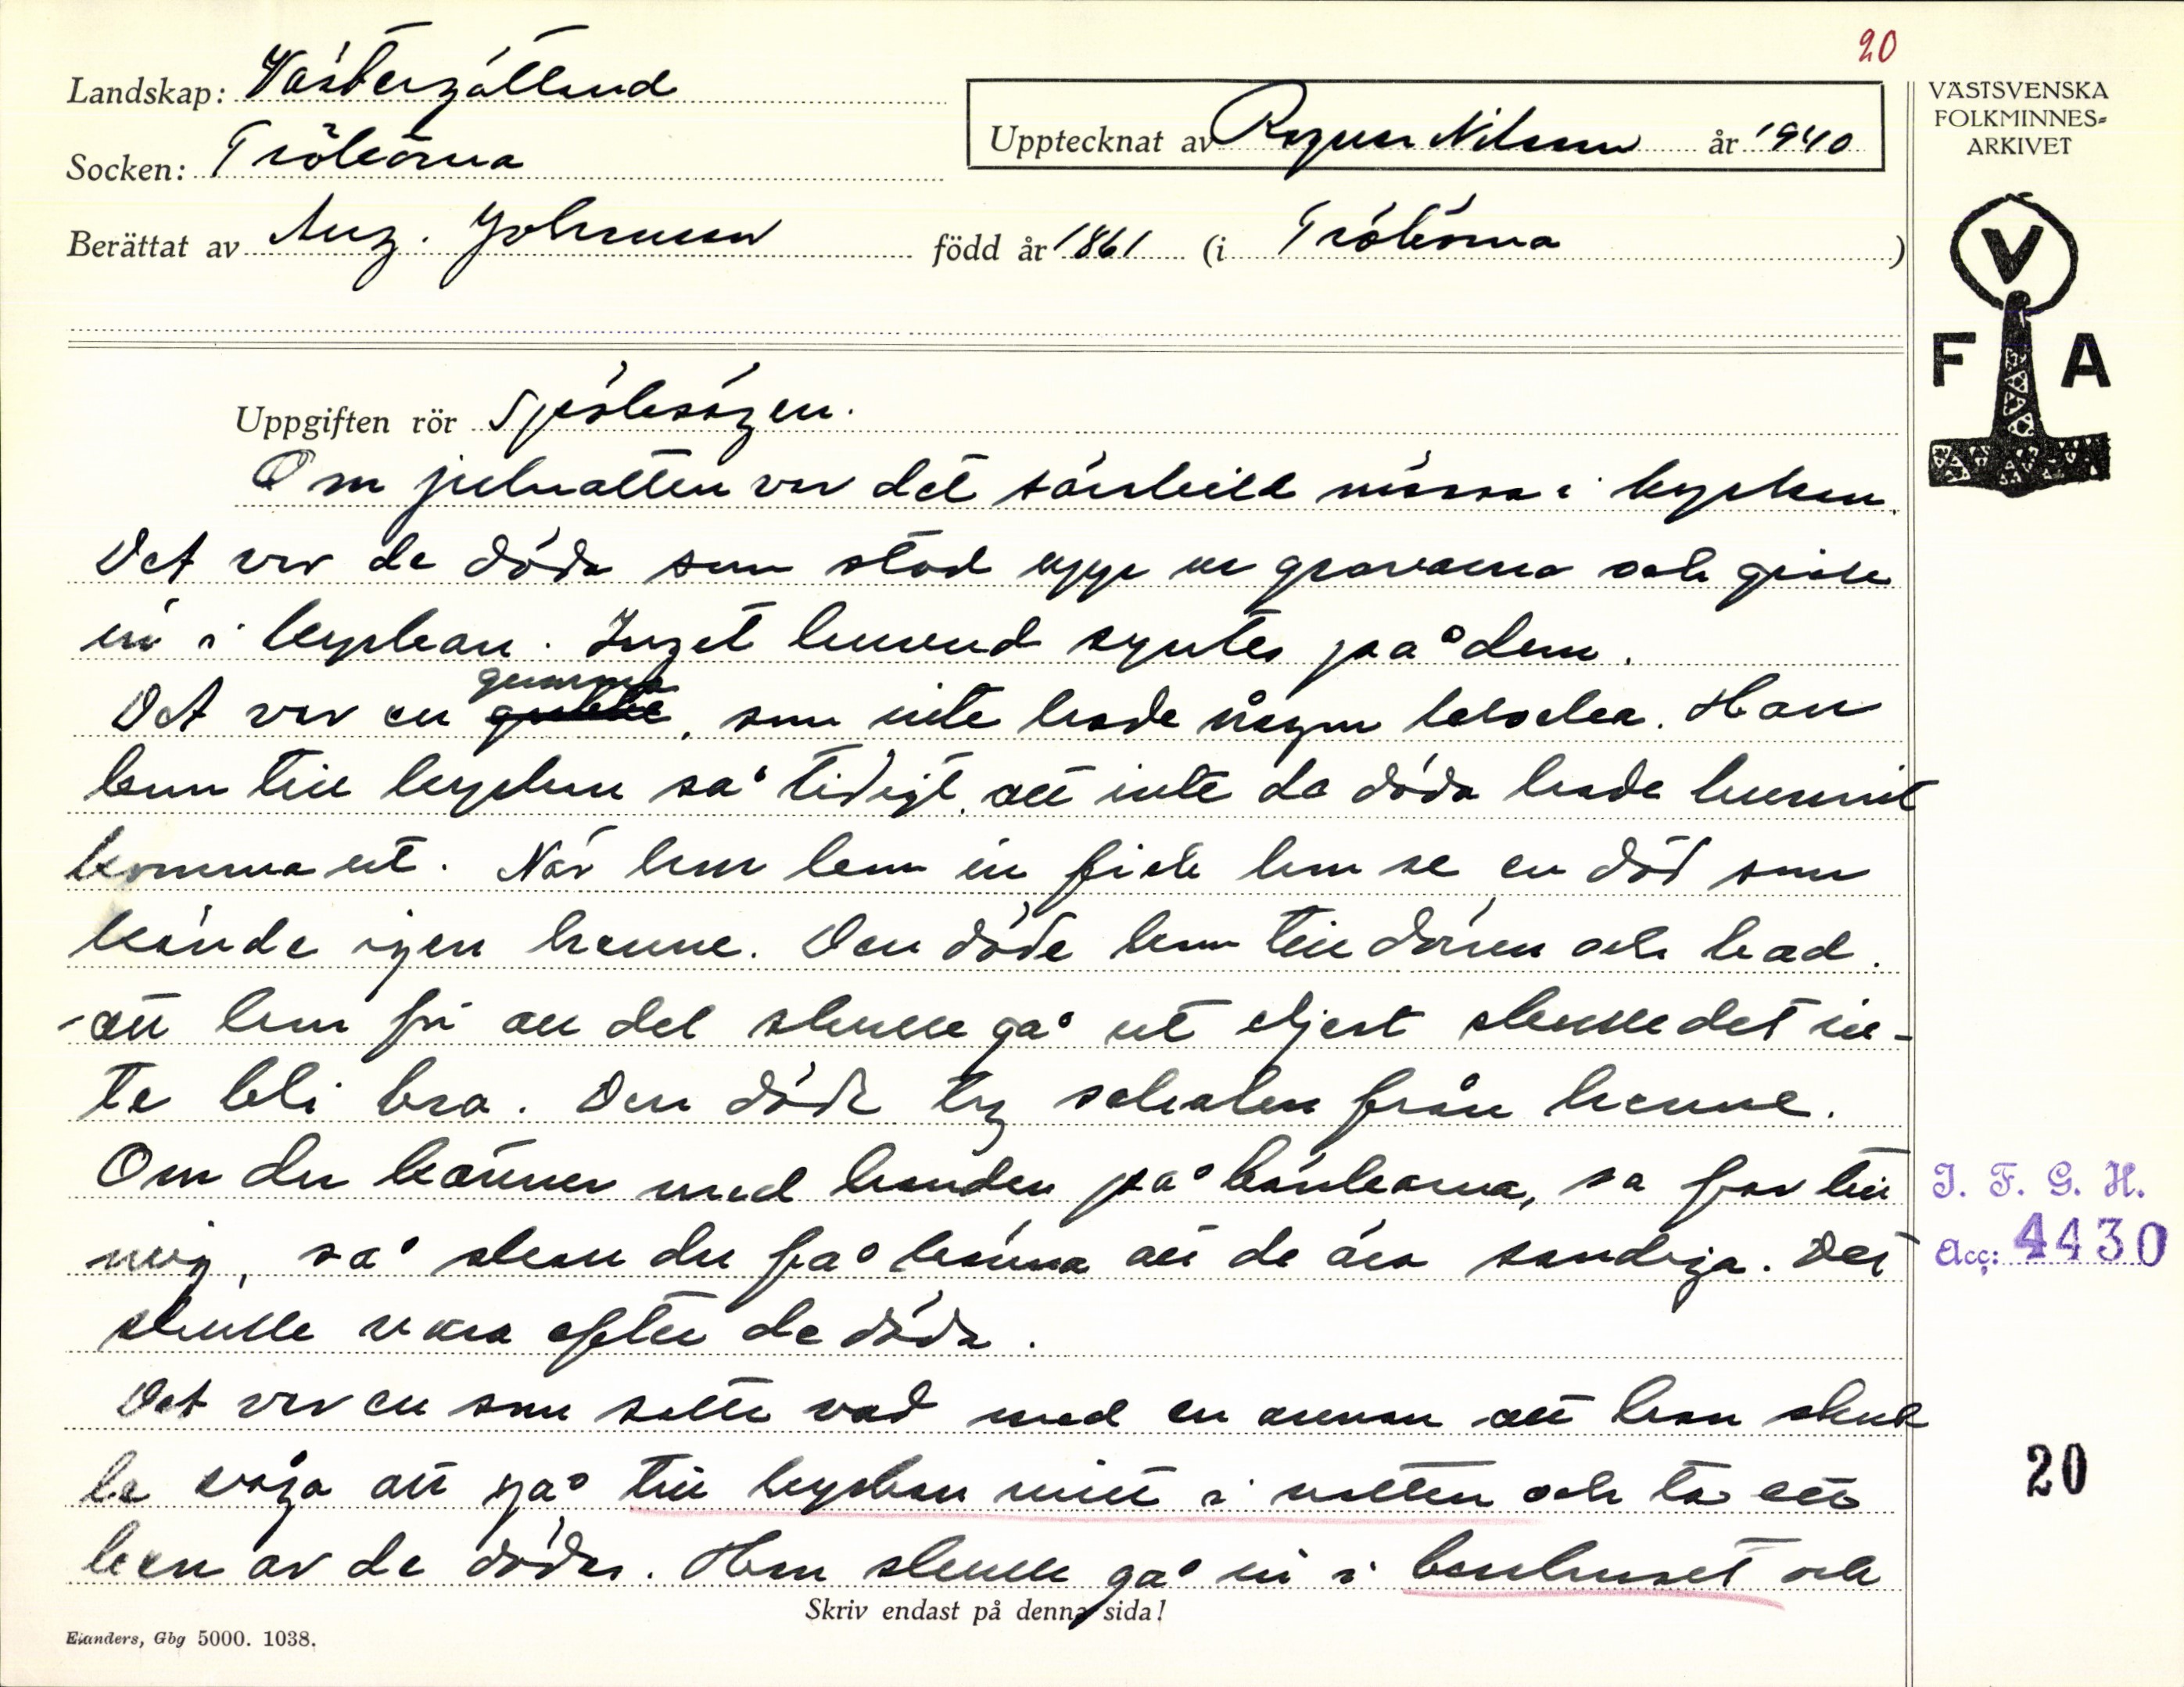 20
Landskap: Västergötland
Socken: Trökörna
Upptecknat av Ragnar Nilsson år 1940
Berättat av Aug. Johansson född år 1861 (i Trökörna)
VÄSTSVENSKA
FOLKMINNES=
ARKIVET
V
F A
Uppgiften rör Spöksägen.
Om julnatten var det särskild mässa i kyrkan.
Det var de döda som stod upp ur gravarna och gick
in i kyrkan. Inget huvud syntes på dem.
gumma
Det var en gubbe, som inte hade någon klocka. Hon
kom till kyrkan så tidigt att inte de döda hade hunnit
komma ut. När hon kom in fick hon se en död som
kände igen henne. Den döde kom till dörren och bad
att hon för all del skulle gå ut eljest skulle det in-
te bli bra. Den döde tog schalen från henne.
Om du känner med handen på bänkarna, sa far till
mig, så skall du få känna att de äro sandiga. Det
skulle vara efter de döda.
Det var en som satte vad med en annan att han skul
le våga att gå till kyrkan mitt i natten och ta ett
ben av de döda. Han skulle gå in i benhuset och
Skriv endast på denna sida!
Elanders, Gbg 5000. 1038.
I. F. G. H.
Acc: 4430
20